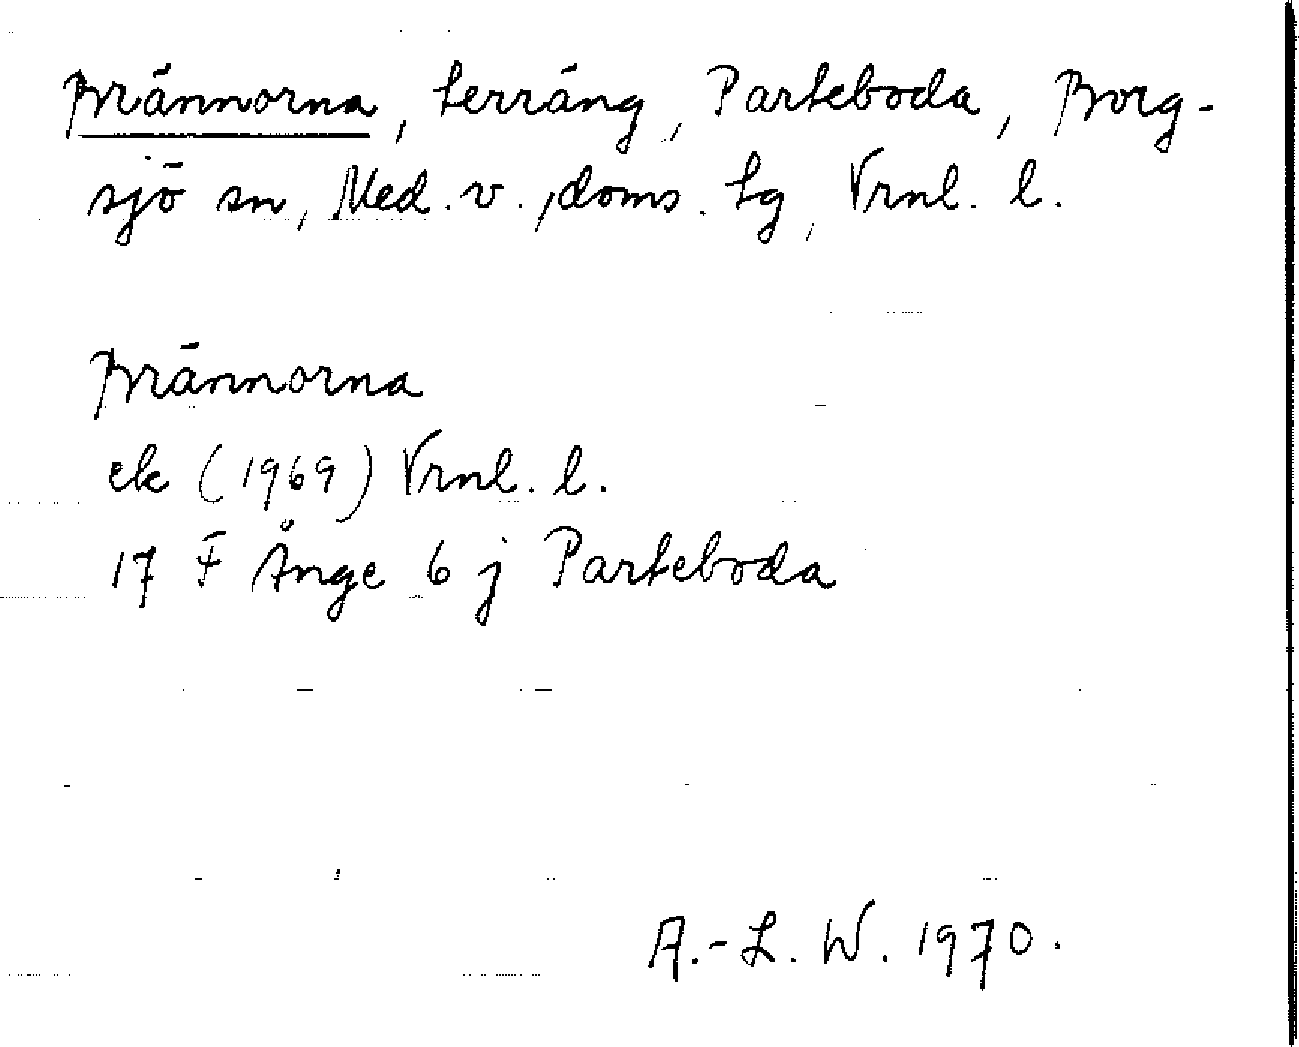 Brännorna, terräng, Parteboda, Borg-
sjö sn, Med. v., doms. tg, Vrnl. l.
Brännorna
ek (1969) Vrnl. l.
17 F Ånge 6 j Parteboda
A.-L. W. 1970.